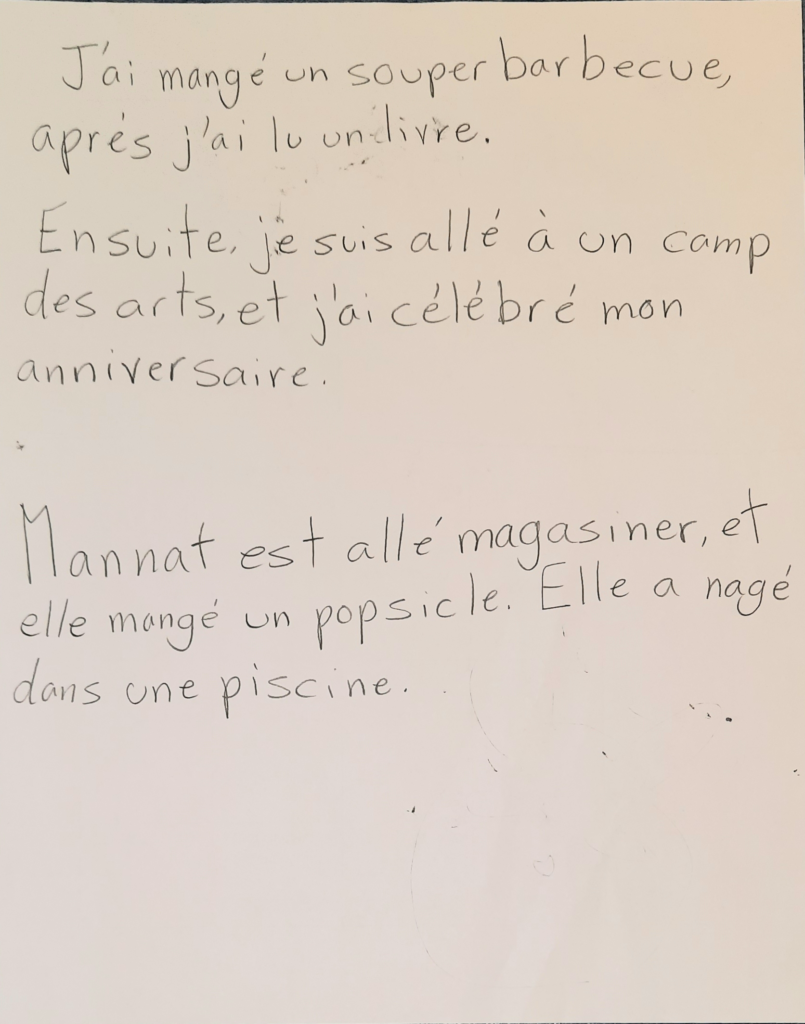 J'ai mangé un souper barbecue,
aprés j'ai lu un livre.
Ensuite, je suis allé à un camp
des arts, et j'ai célébré mon
anniversaire.
Mannat est allé magasiner, et
elle mangé un popsicle. Elle a nagé
dans une piscine.